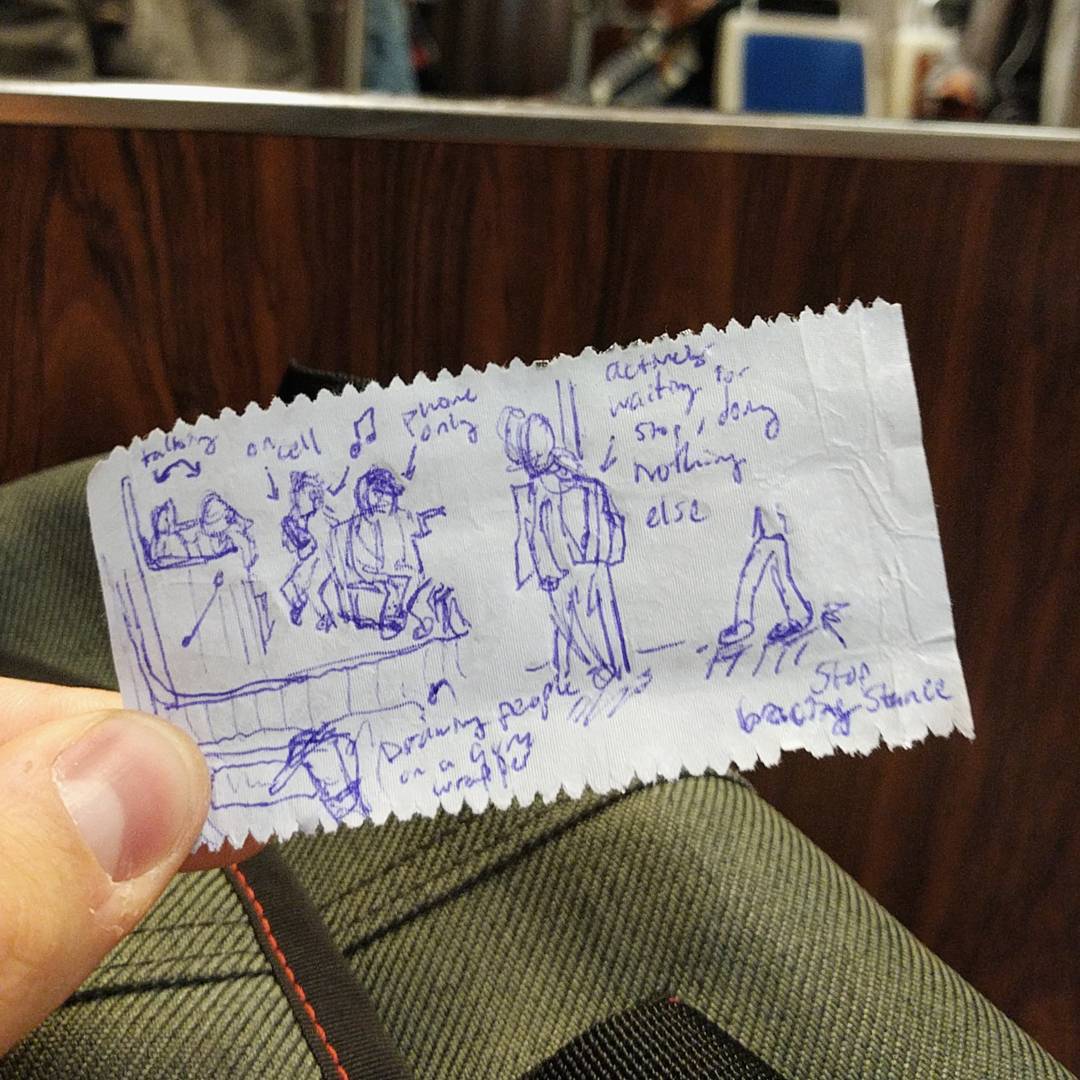 talking
on cell
phone
only
actively
waiting for
stop, doing
nothing
else
Drawing people
on a gum
wrapper
Stop
bracing Stance